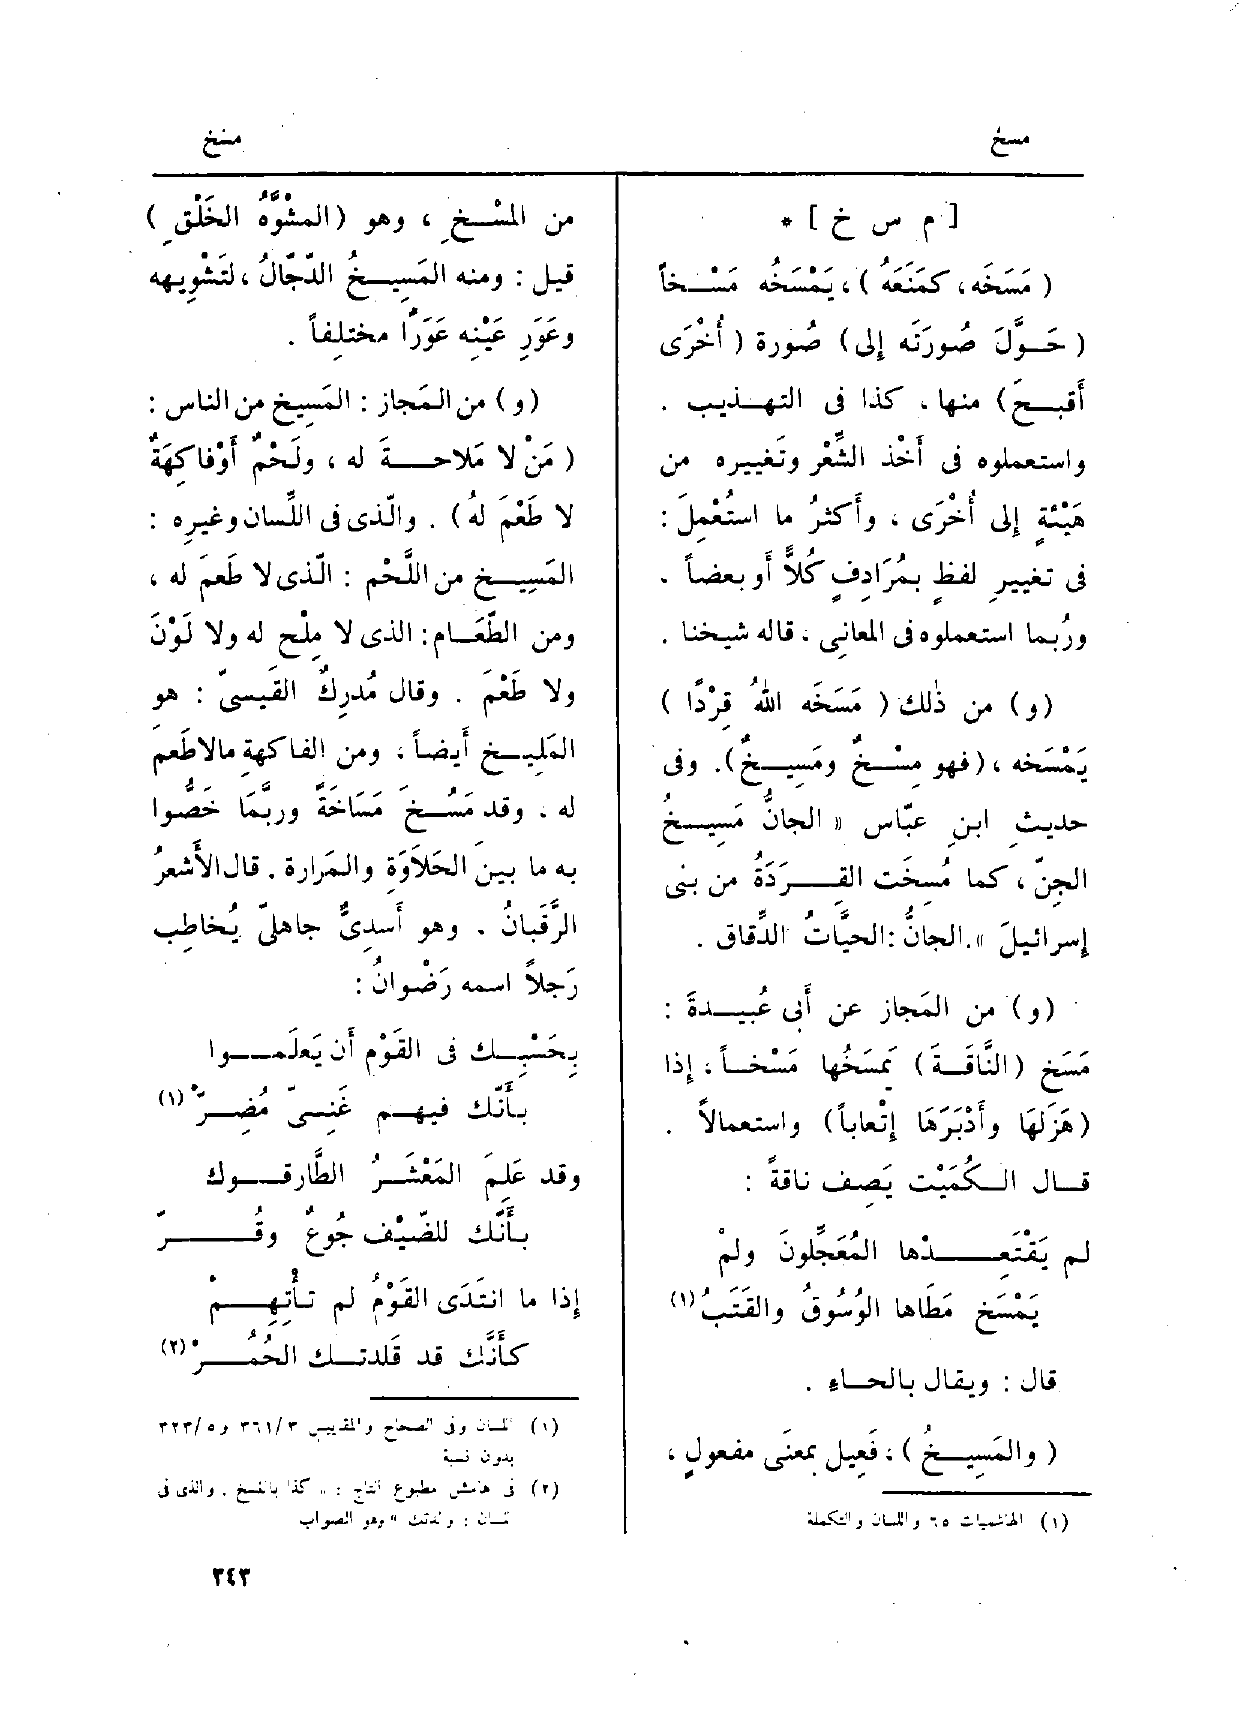 مسخ
مسخ
[ م س خ ] *
( مَسَخَه ، كمَنَعَهُ ) ، يَمْسَخه مَسْخاً
( حَوَّلَ صُورَتَه إلى ) صُورة ( أُخْرَى
أَقبحَ ) منها ، كذا فى التهذيب .
واستعملوه فى أَخْذ الشِّعْر وتَغييره من
هَيْئةٍ إلى أُخْرَى ، وأَكثرُ ما استُعْمِلَ :
فى تغييرِ لفظٍ بمُرَادِفٍ كُلاًّ أو بعضاً .
ورُبما استعملوه فى المعانِى ، قاله شيخنا .
( و ) من ذٰلك ( مَسَخَه اللهُ قِرْدًا )
يَمْسَخه ، ( فهو مِسْخٌ ومَسِيخٌ ) . وفى
حديث ابنِ عبّاس « الجانُّ مَسِيخُ
الجنّ ، كما مُسخَت القِرَدَةُ من بنى
إسرائيلَ » . الجانُّ : الحيَّاتُ الدِّقاق .
( و ) من المَجاز عن أَبى عُبيدةَ :
مَسَخ ( النَّاقةَ ) يَمسَخُها مَسْخاً ، إذا
( هَزَلَهَا وأَدْبَرَهَا إتْعاباً ) واستعمالاً .
قال الكُمَيْت يَصف ناقةً :
لم يَقْتَعِدْها المُعَجِّلونَ ولمْ
يَمْسَخ مَطَاها الوُسُوقُ والقَتَبُ (١)
قال : ويقال بالحاء .
( والمَسِيخُ ) : فَعِيل بمعنَى مفعولٍ ،
(١) الهاشميات ٦٥ واللسان والتكملة
من المَسْخِ ، وهو ( المشْوَّهُ الخَلْقِ )
قيل : ومنه المَسِيخُ الدَّجّالُ ، لتَشْوِيهه
وعَوَرِ عَيْنِه عَوَرًا مختلِفاً .
( و ) من المَجاز : المَسِيخ من الناس :
( مَنْ لا مَلاحةَ له ، ولَحْمٌ أَوْفاكِهَةٌ
لا طَعْمَ لهُ ) . والّذى فى اللِّسان وغيرِه :
المَسِيخ من اللَّحْم : الّذى لا طَعمَ له ،
ومن الطَّعَام : الذى لا مِلْح له ولا لَوْنَ
ولا طَعْمَ . وقال مُدرِكٌ القَيسىّ : هو
المَلِيخ أَيضاً ، ومن الفاكهة مالاطَعمَ
له ، وقد مَسُخَ مَسَاخَةً وربَّمَا خَصُّوا
به ما بينَ الحَلاَوَةِ والمَرارة . قال الأَشعرُ
الرَّقَبانُ . وهو أَسدِىٌّ جاهلىّ يُخاطِب
رَجلاً اسمه رَضْوانُ :
بِحَسْبِك فى القَوْمِ أَن يَعلَموا
بأَنَّك فيهم غَنِىّ مُضِرّْ (١)
وقد عَلِمَ المَعْشَرُ الطَّارقوك
بأَنَّك للضَّيْف جُوعٌ وقُرّ
إذا ما انتَدَى القَوْمُ لم تأْتِهِمْ
كأَنَّك قد قَلدتك الحُمُرْ (٢)
(١) اللسان وفى الصحاح والمقاييس ٣٦١/٣ و٣٢٣/٥
بدون نسبة
(٢) فى هامش مطبوع التاج : « كذا بالنسخ ، والذى فى
اللسان : ولدتك » وهو الصواب
٣٤٣